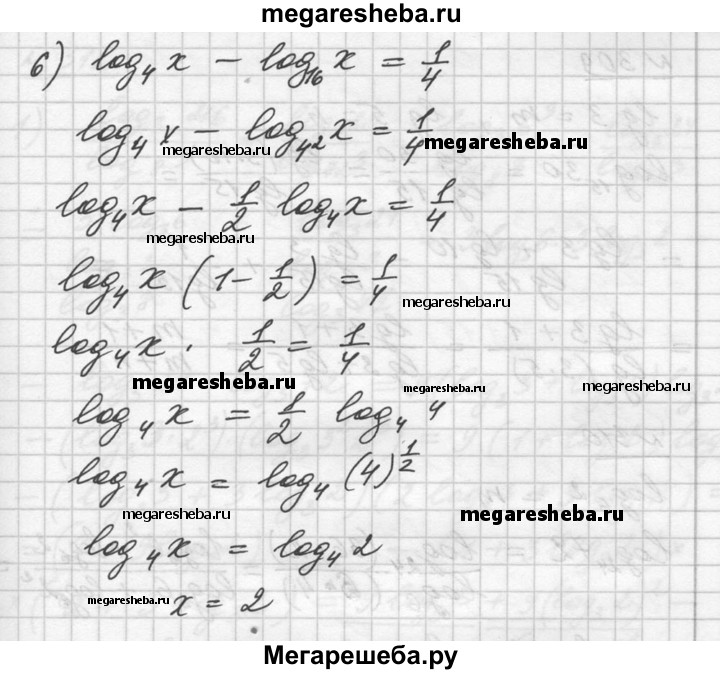 megaresheba.ru
6) log₄ x − log₁₆ x = 1/4
log₄ x − log₄² x = 1/4
megaresheba.ru megaresheba.ru
log₄ x − 1/2 log₄ x = 1/4
megaresheba.ru
log₄ x (1 − 1/2) = 1/4
megaresheba.ru
log₄ x · 1/2 = 1/4
megaresheba.ru megaresheba.ru megaresheba.ru
log₄ x = 1/2 log₄ 4
log₄ x = log₄ (4)^1/2
megaresheba.ru megaresheba.ru
log₄ x = log₄ 2
megaresheba.ru x = 2
Мегарешеба.ру